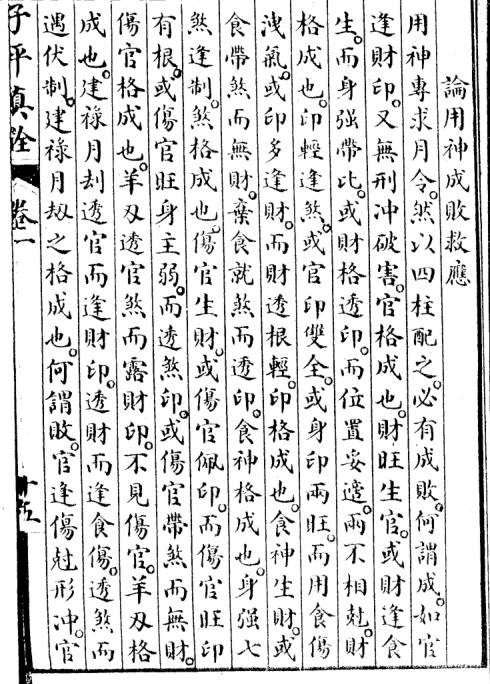 論用神成敗救應
用神專求月令。然以四柱配之。必有成敗。何謂成。如官
逢財印。又無刑冲破害。官格成也。財旺生官。或財逢食
生。而身强帶比。或財格透印。而位置妥適。兩不相尅。財
格成也。印輕逢煞。或官印雙全。或身印兩旺。而用食傷
洩氣。或印多逢財。而財透根輕。印格成也。食神生財。或
食帶煞而無財。棄食就煞而透印。食神格成也。身强七
煞逢制。煞格成也。傷官生財。或傷官佩印。而傷官旺印
有根。或傷官旺身主弱。而透煞印。或傷官帶煞而無財。
傷官格成也。羊刄透官煞而露財印。不見傷官。羊刄格
成也。建祿月刦透官而逢財印。透財而逢食傷。透煞而
遇伏制。建祿月刼之格成也。何謂敗。官逢傷尅形冲。官
子平真詮 卷一 十五